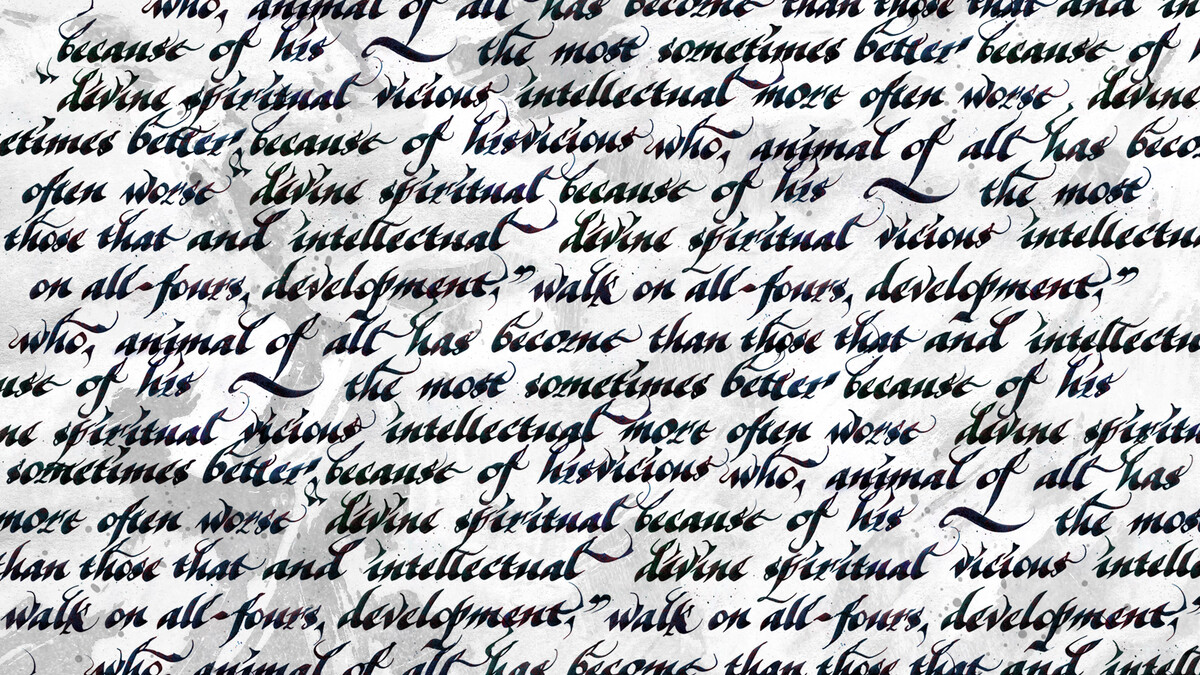 who, animal of all has become than those that and in
because of his the most sometimes better because of
"divine spiritual vicious intellectual more often worse, divine
etimes better, because of his vicious who, animal of all has beco
often worse "divine spiritual because of his the most
those that and intellectual divine spiritual vicious intellectu
on all-fours, development," walk on all-fours, development,"
who, animal of all has become than those that and intellectu
use of his the most sometimes better because of his
ne spiritual vicious intellectual more often worse divine spiritu
sometimes better, because of his vicious who, animal of all has
more often worse "divine spiritual because of his the mos
than those that and intellectual divine spiritual vicious intelle
walk on all-fours, development," walk on all-fours, development,"
who, animal of all has become than those that and intell